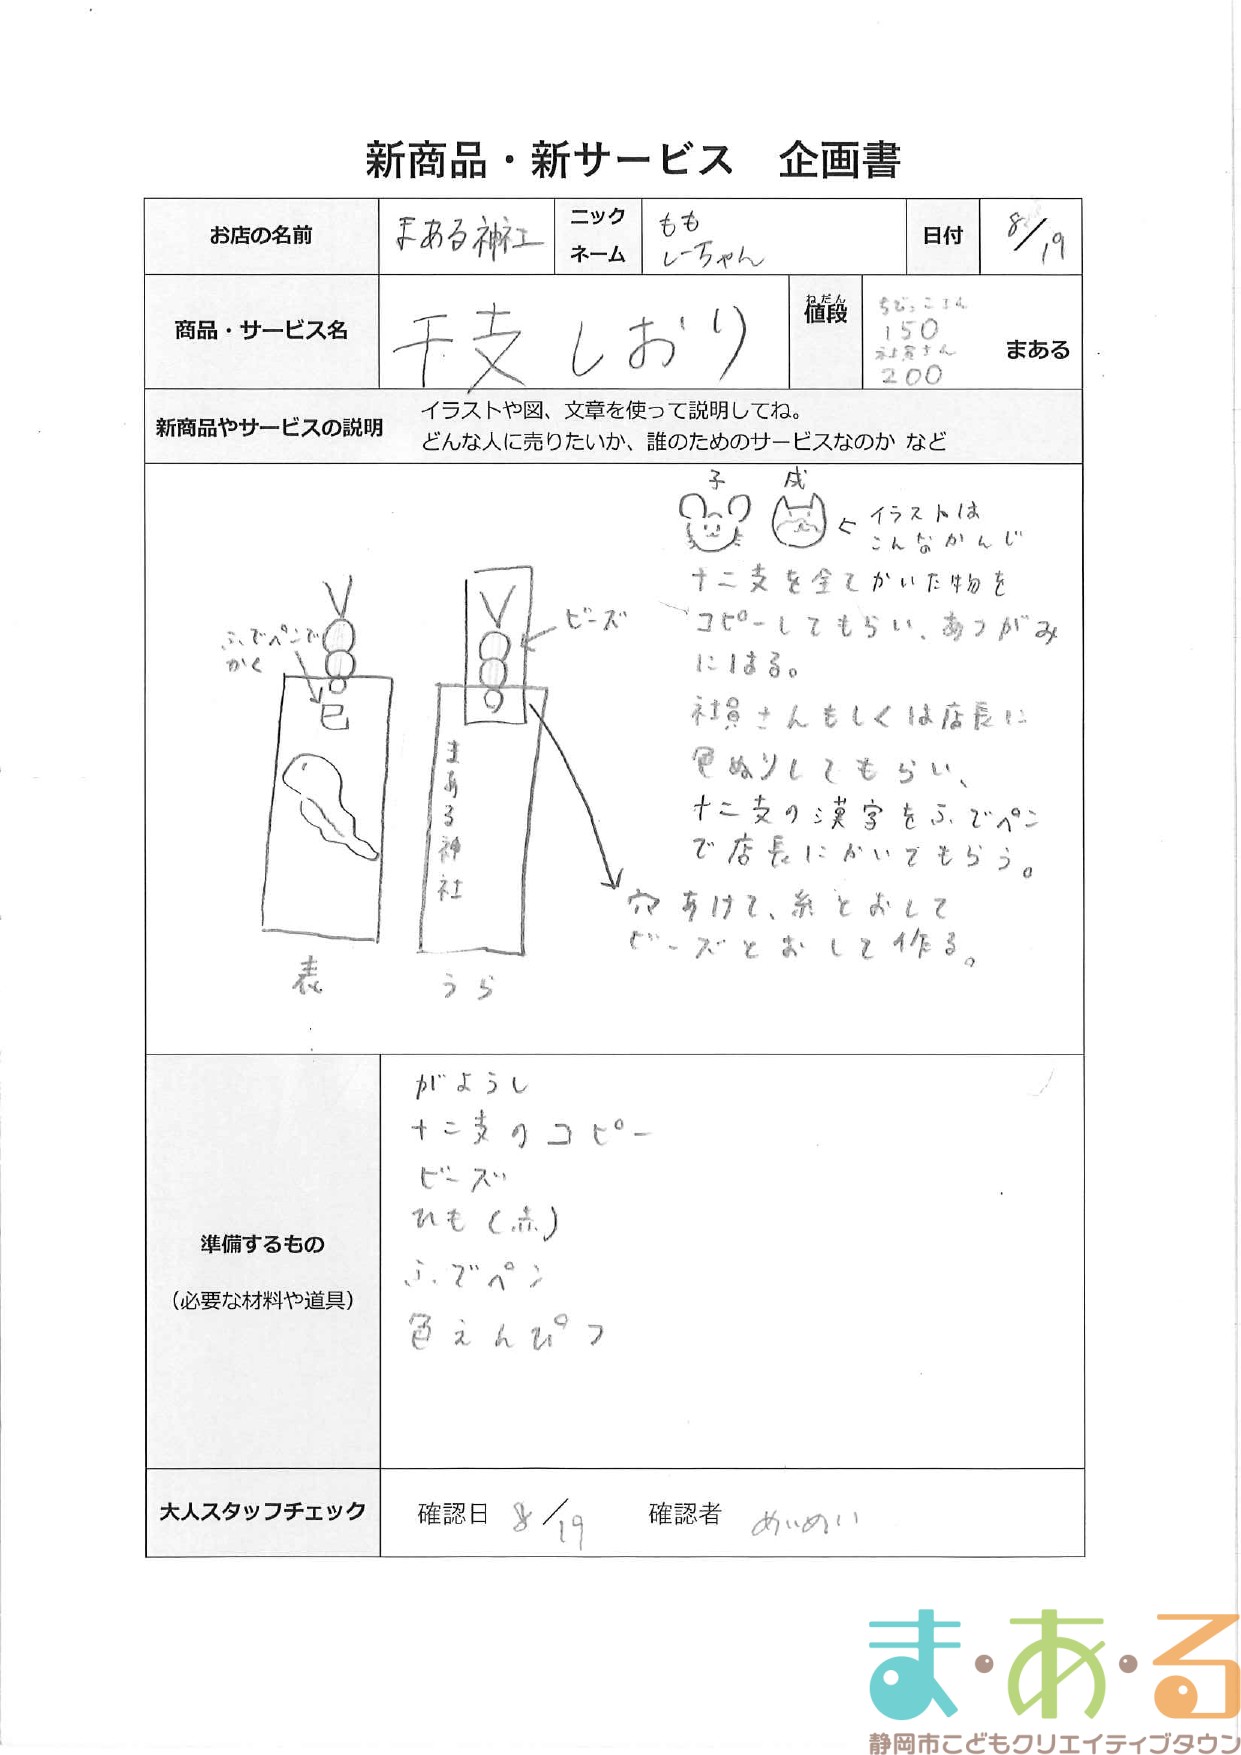 新商品・新サービス　企画書
お店の名前
まある神社
ニック
ネーム
もも
しーちゃん
日付
8/19
商品・サービス名
干支しおり
ねだん
値段
ちびっこさん
150
社員さん
200
まある
新商品やサービスの説明
イラストや図、文章を使って説明してね。
どんな人に売りたいか、誰のためのサービスなのか など
子 戌
イラストは
こんなかんじ
十二支を全てかいた物を
コピーしてもらい、あつがみ
にはる。
社員さんもしくは店長に
色ぬりしてもらい、
十二支の漢字をふでペン
で店長にかいてもらう。
穴あけて、糸とおして
ビーズとおして作る。
ふでペンで
かく
巳
表
ビーズ
まある神社
うら
準備するもの
（必要な材料や道具）
がようし
十二支のコピー
ビーズ
ひも(赤)
ふでペン
色えんぴつ
大人スタッフチェック
確認日 8/19 確認者 めいめい
ま・あ・る
静岡市こどもクリエイティブタウン